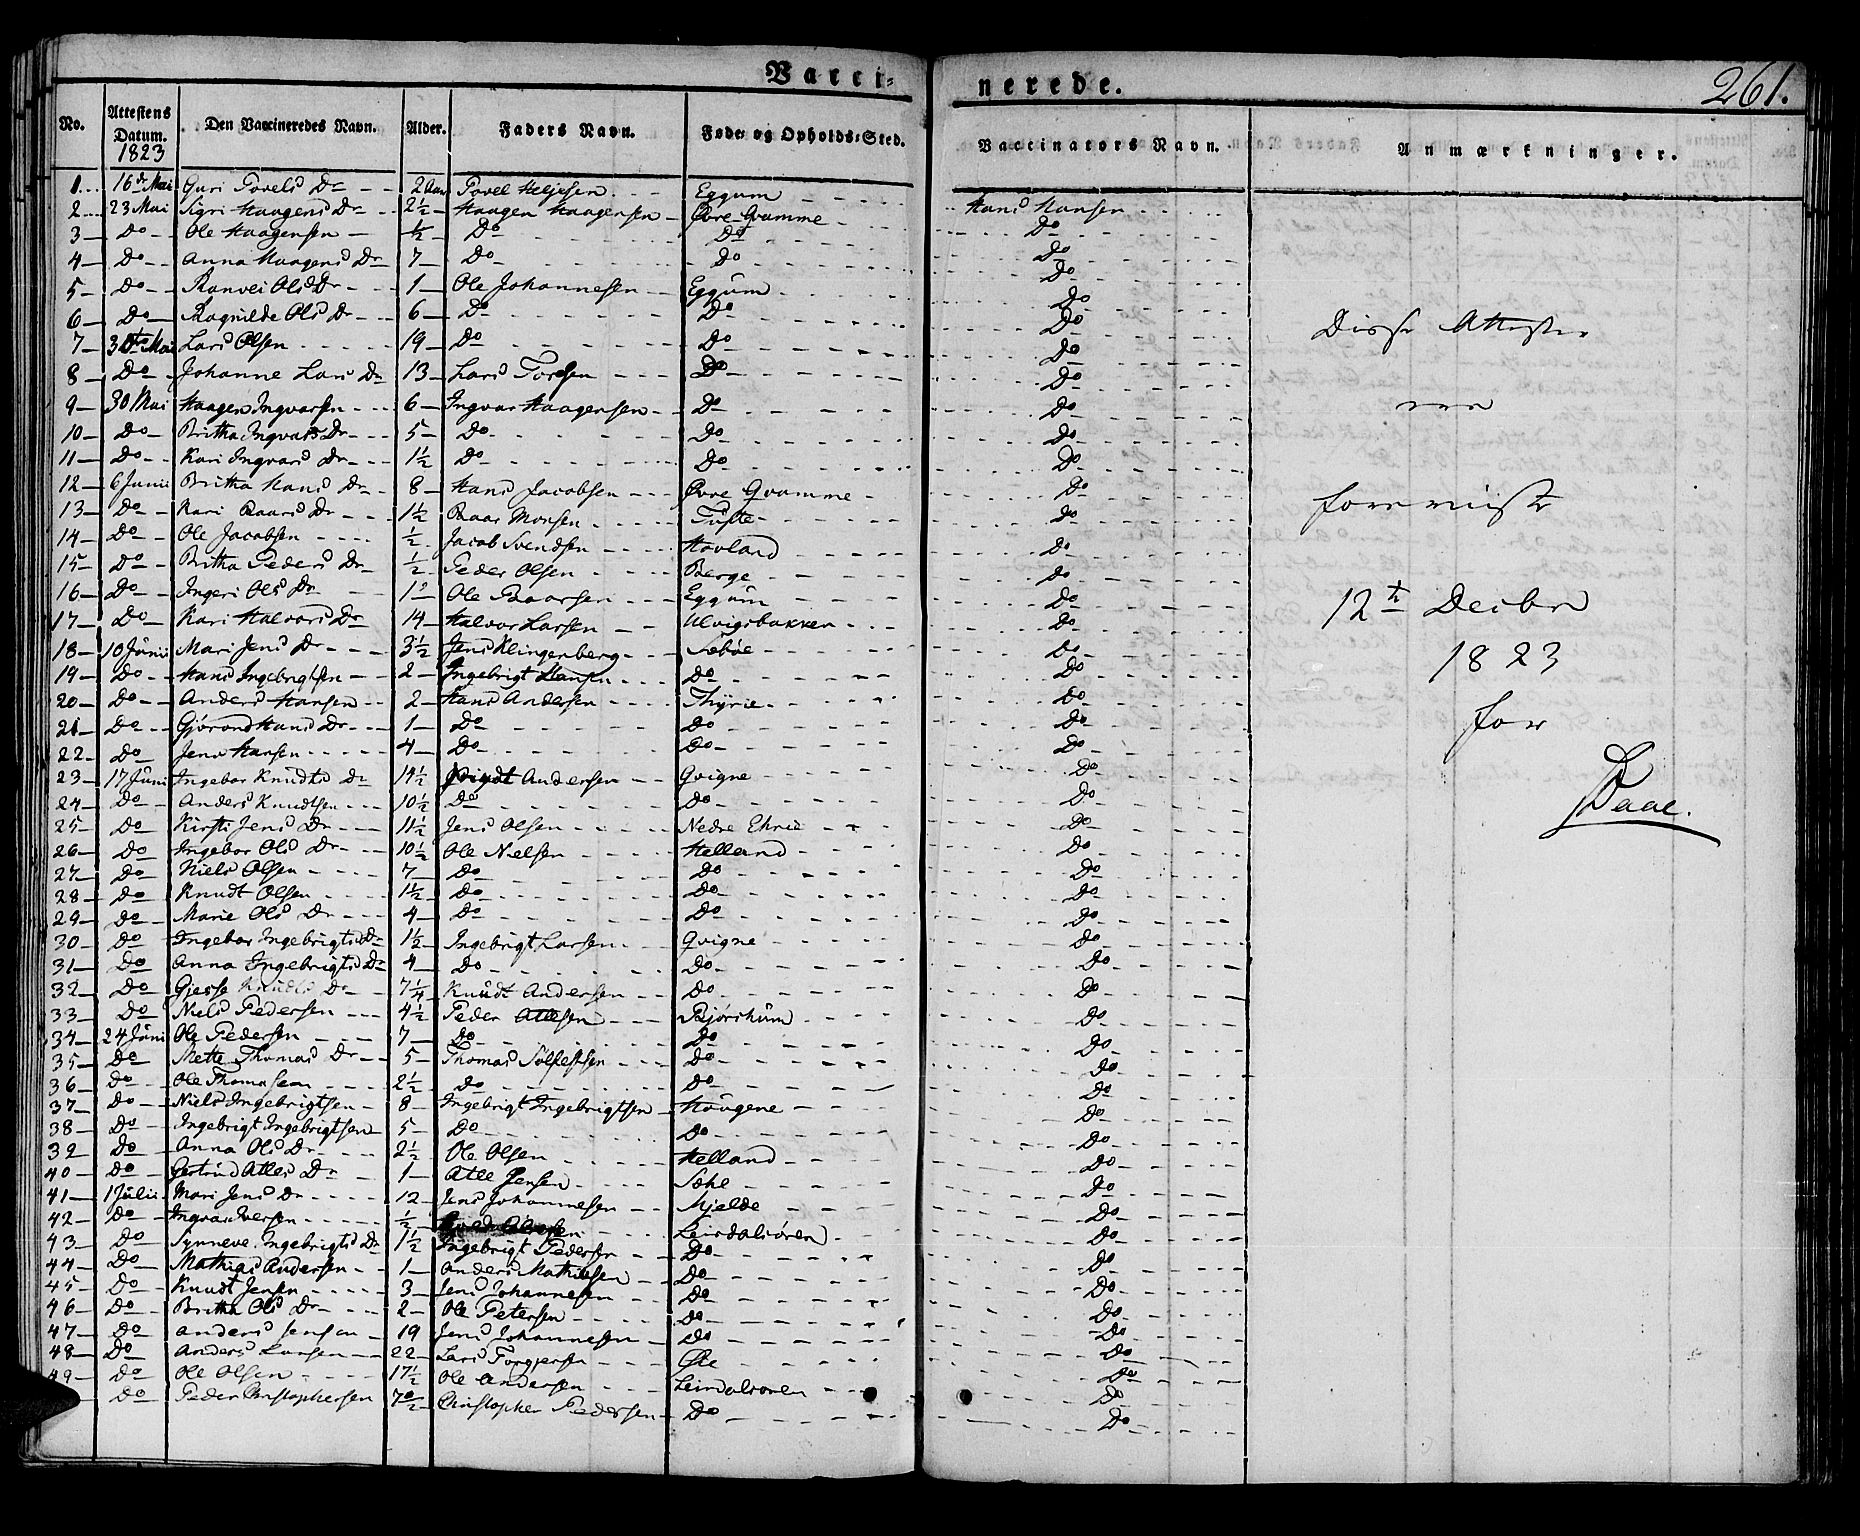 Vacci= nerede. 261.
No. Attestens Datum. 1823 Den Vaccineredes Navn. Alder. Faders Navn. Føde og Opholds-Sted. Vaccinators Navn. Anmærkninger.
1. 16de Mai Guri Povels Dr 2 Povel Helgesen Eggum
2 23 Mai Sigri Haagens Dr 2½ Haagen Haagensen Øvre Qvamme Hans Hansen
3 Do Ole Haagensen ½ Do Do Do
4 Do Anna Haagens Dr 7 Do Do Do
5 Do Ranvei Ols Dr 1 Ole Johannesen Eggum Do
6 Do Ragnilde Ols Dr 6 Do Do Do
7 Mai Lars Olsen 19 Do Do Do
8 Do Johanne Lars Dr 13 Lars Do Do
9 30 Mai Haagen Ingvarsen 6 Ingvar Haagensen Do Do
10 Do Britha Ingvars Dr 5 Do Do Do
11 Do Kari Ingvars Dr 1½ Do Do Do
12 6 Junii Britha Hans Dr 8 Hans Jacobsen Øvre Qvamme Do
13 Do Kari Baars Dr 1½ Baar Monsen Tufte Do
14 Do Ole Jacobsen ½ Jacob Svendsen Hovland Do
15 Do Britha Peders Dr ½ Peder Olsen Berge Do
16 Do Ingeri Ols Dr Ole Baarsen Eggum Do
17 Do Kari Halvors Dr 14 Halvor Larsen Ulvigsbakken Do
18 10 Junii Mari Jens Dr 3½ Jens Klingenberg Sebøe Do
19 Do Hans Ingebrigtsen 2 Ingebrigt Hansen Do Do
20 Do Anders Hansen 2 Hans Andersen Thyrie Do
21 Do Gjørond Hans Dr 1 Do Do Do
22 Do Jens Hansen 4 Do Do Do
23 17 Juni Ingebor Knudts Dr 14½ Andersen Qvigne Do
24 Do Anders Knudtsen 10½ Do Do Do
25 Do Kirsti Jens Dr 11½ Jens Olsen Nedre Ehrie Do
26 Do Ingebor Ols Dr 10½ Ole Nielsen Helland Do
27 Do Niels Olsen 7 Do Do Do
28 Do Knudt Olsen 1½ Do Do Do
29 Do Marie Ols Dr 4 Do Do Do
30 Do Ingebor Ingebrigts Dr 1½ Ingebrigt Larsen Qvigne Do
31 Do Anna Ingebrigts Dr 4 Do Do Do
32 Do Gjesse Knudts Dr 7¼ Knudt Andersen Do Do
33 Do Niels Pedersen 4½ Peder Atlesen Bjørkum Do
34 24 Juni Ole Pedersen 7 Do Do Do
35 Do Mette Thomas Dr 5 Thomas Solfestsen Do Do
36 Do Ole Thomasen 2½ Do Do Do
37 Do Niels Ingebrigtsen 8 Ingebrigt Ingebrigtsen Hougene Do
38 Do Ingebrigt Ingebrigtsen 5 Do Do Do
39 Do Anna Ols Dr 2½ Ole Olsen Helland Do
40 Do Gertrud Atles Dr 1 Atle Jensen Do
41 1 Julii Mari Jens Dr 12 Jens Johannesen Mjelde Do
42 Do Ingvar Iversen ½ Leirdalsøren Do
43 Do Synneve Ingebrigts Dr 1½ Ingebrigt Pedersen Do Do
44 Do Mathias Andersen 1 Anders Mathiesen Do Do
45 Do Knudt Jensen 3 Jens Johannesen Do Do
46 Do Britha Ols Dr 2 Ole Petersen Do Do
47 Do Anders Jensen 19 Jens Johannesen Do Do
48 Do Anders Larsen 22 Lars Torgersen Øie Do
49 Do Ole Olsen 17½ Ole Andersen Leirdalsøren Do
Do Peder Christophersen Christopher Pedersen Do Do
Disse Attester
ere
foreviist
12te Decbr
1823
for
Daae.